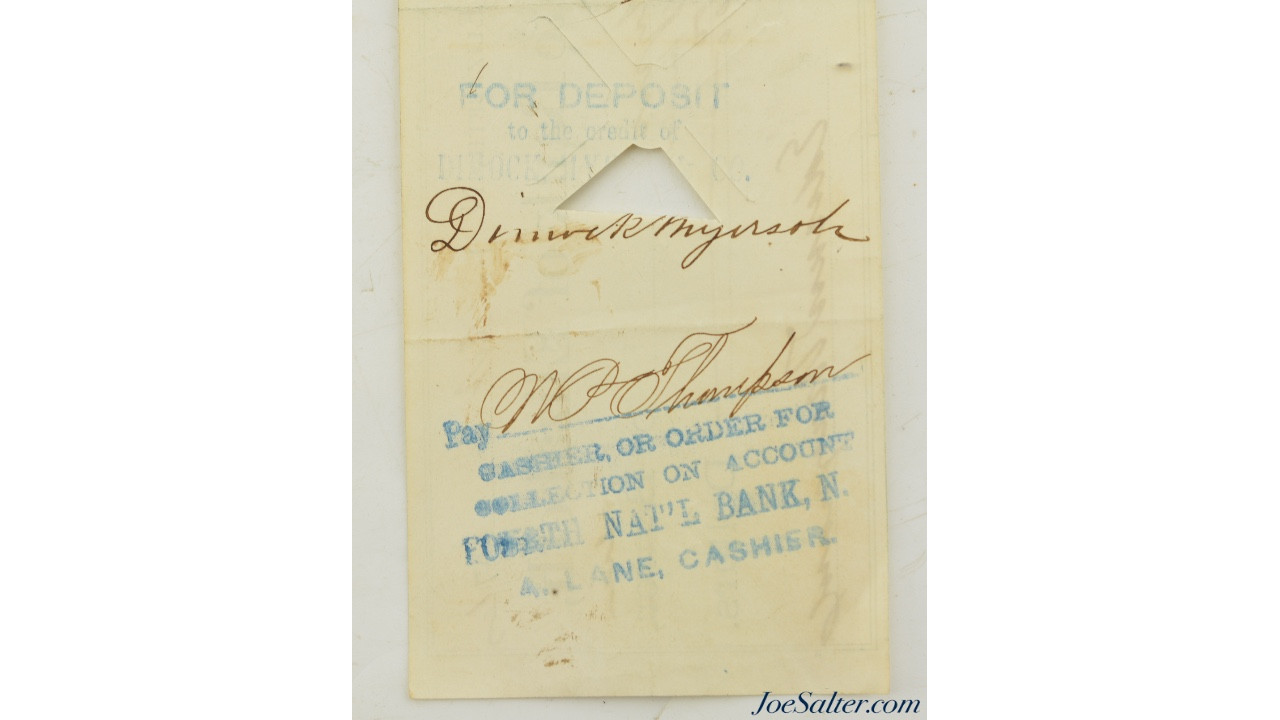 FOR DEPOSIT
to the credit of
DIMOCK, CO.
Dimock Myerson
W P Thompson
Pay
CASHIER, OR ORDER FOR
COLLECTION ON ACCOUNT
FOURTH NAT'L BANK, N.
A. LANE, CASHIER.
JoeSalter.com